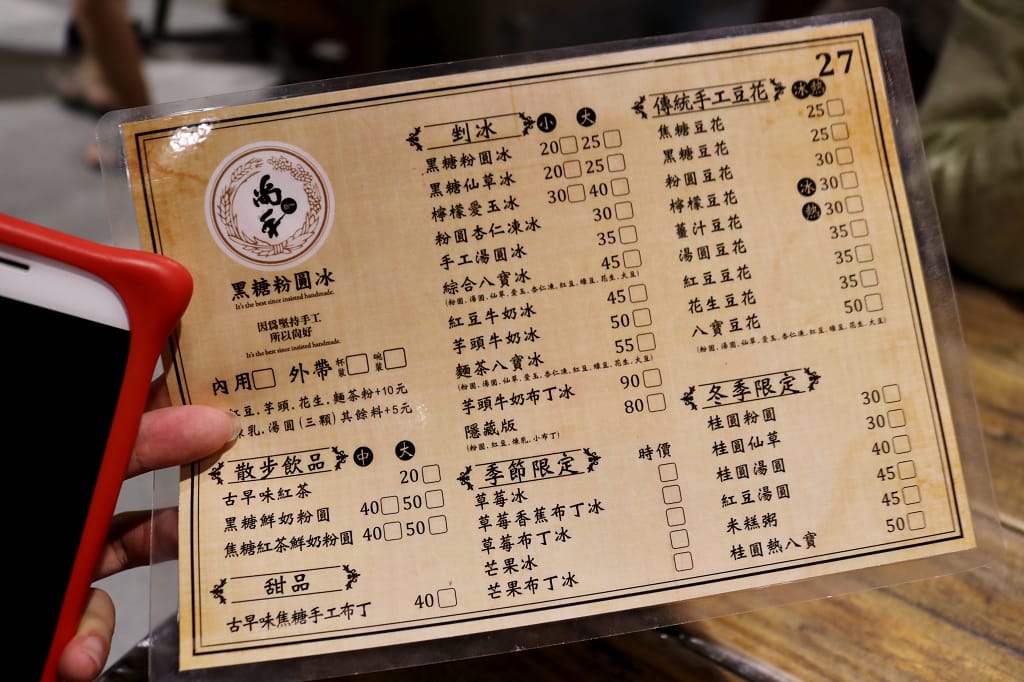 27
尚禾
黑糖粉圓冰
It's the best since insisted handmade.
因為堅持手工
所以尚好
It's the best since insisted handmade.
內用 外帶 杯裝 碗裝
紅豆.芋頭.花生.麵茶粉+10元
煉乳.湯圓(三顆)其餘料+5元
散步飲品 中 大
古早味紅茶 20
黑糖鮮奶粉圓 40 50
焦糖紅茶鮮奶粉圓 40 50
甜品
古早味焦糖手工布丁 40
剉冰 小 大
黑糖粉圓冰 20 25
黑糖仙草冰 20 25
檸檬愛玉冰 30 40
粉圓杏仁凍冰 30
手工湯圓冰 35
綜合八寶冰 45
(粉圓.湯圓.仙草.愛玉.杏仁凍.紅豆.綠豆.花生.大豆)
紅豆牛奶冰 45
芋頭牛奶冰 50
麵茶八寶冰 55
(粉圓.湯圓.仙草.愛玉.杏仁凍.紅豆.綠豆.花生.大豆)
芋頭牛奶布丁冰 90
隱藏版 80
(粉圓.紅豆.煉乳.小布丁)
季節限定 時價
草莓冰
草莓香蕉布丁冰
草莓布丁冰
芒果冰
芒果布丁冰
傳統手工豆花 冰 熱
焦糖豆花 25
黑糖豆花 25
粉圓豆花 30
檸檬豆花 冰 30
薑汁豆花 熱 30
湯圓豆花 35
紅豆豆花 35
花生豆花 35
八寶豆花 50
(粉圓.湯圓.仙草.愛玉.杏仁凍.紅豆.綠豆.花生.大豆)
冬季限定
桂圓粉圓 30
桂圓仙草 30
桂圓湯圓 40
紅豆湯圓 45
米糕粥 45
桂圓熱八寶 50